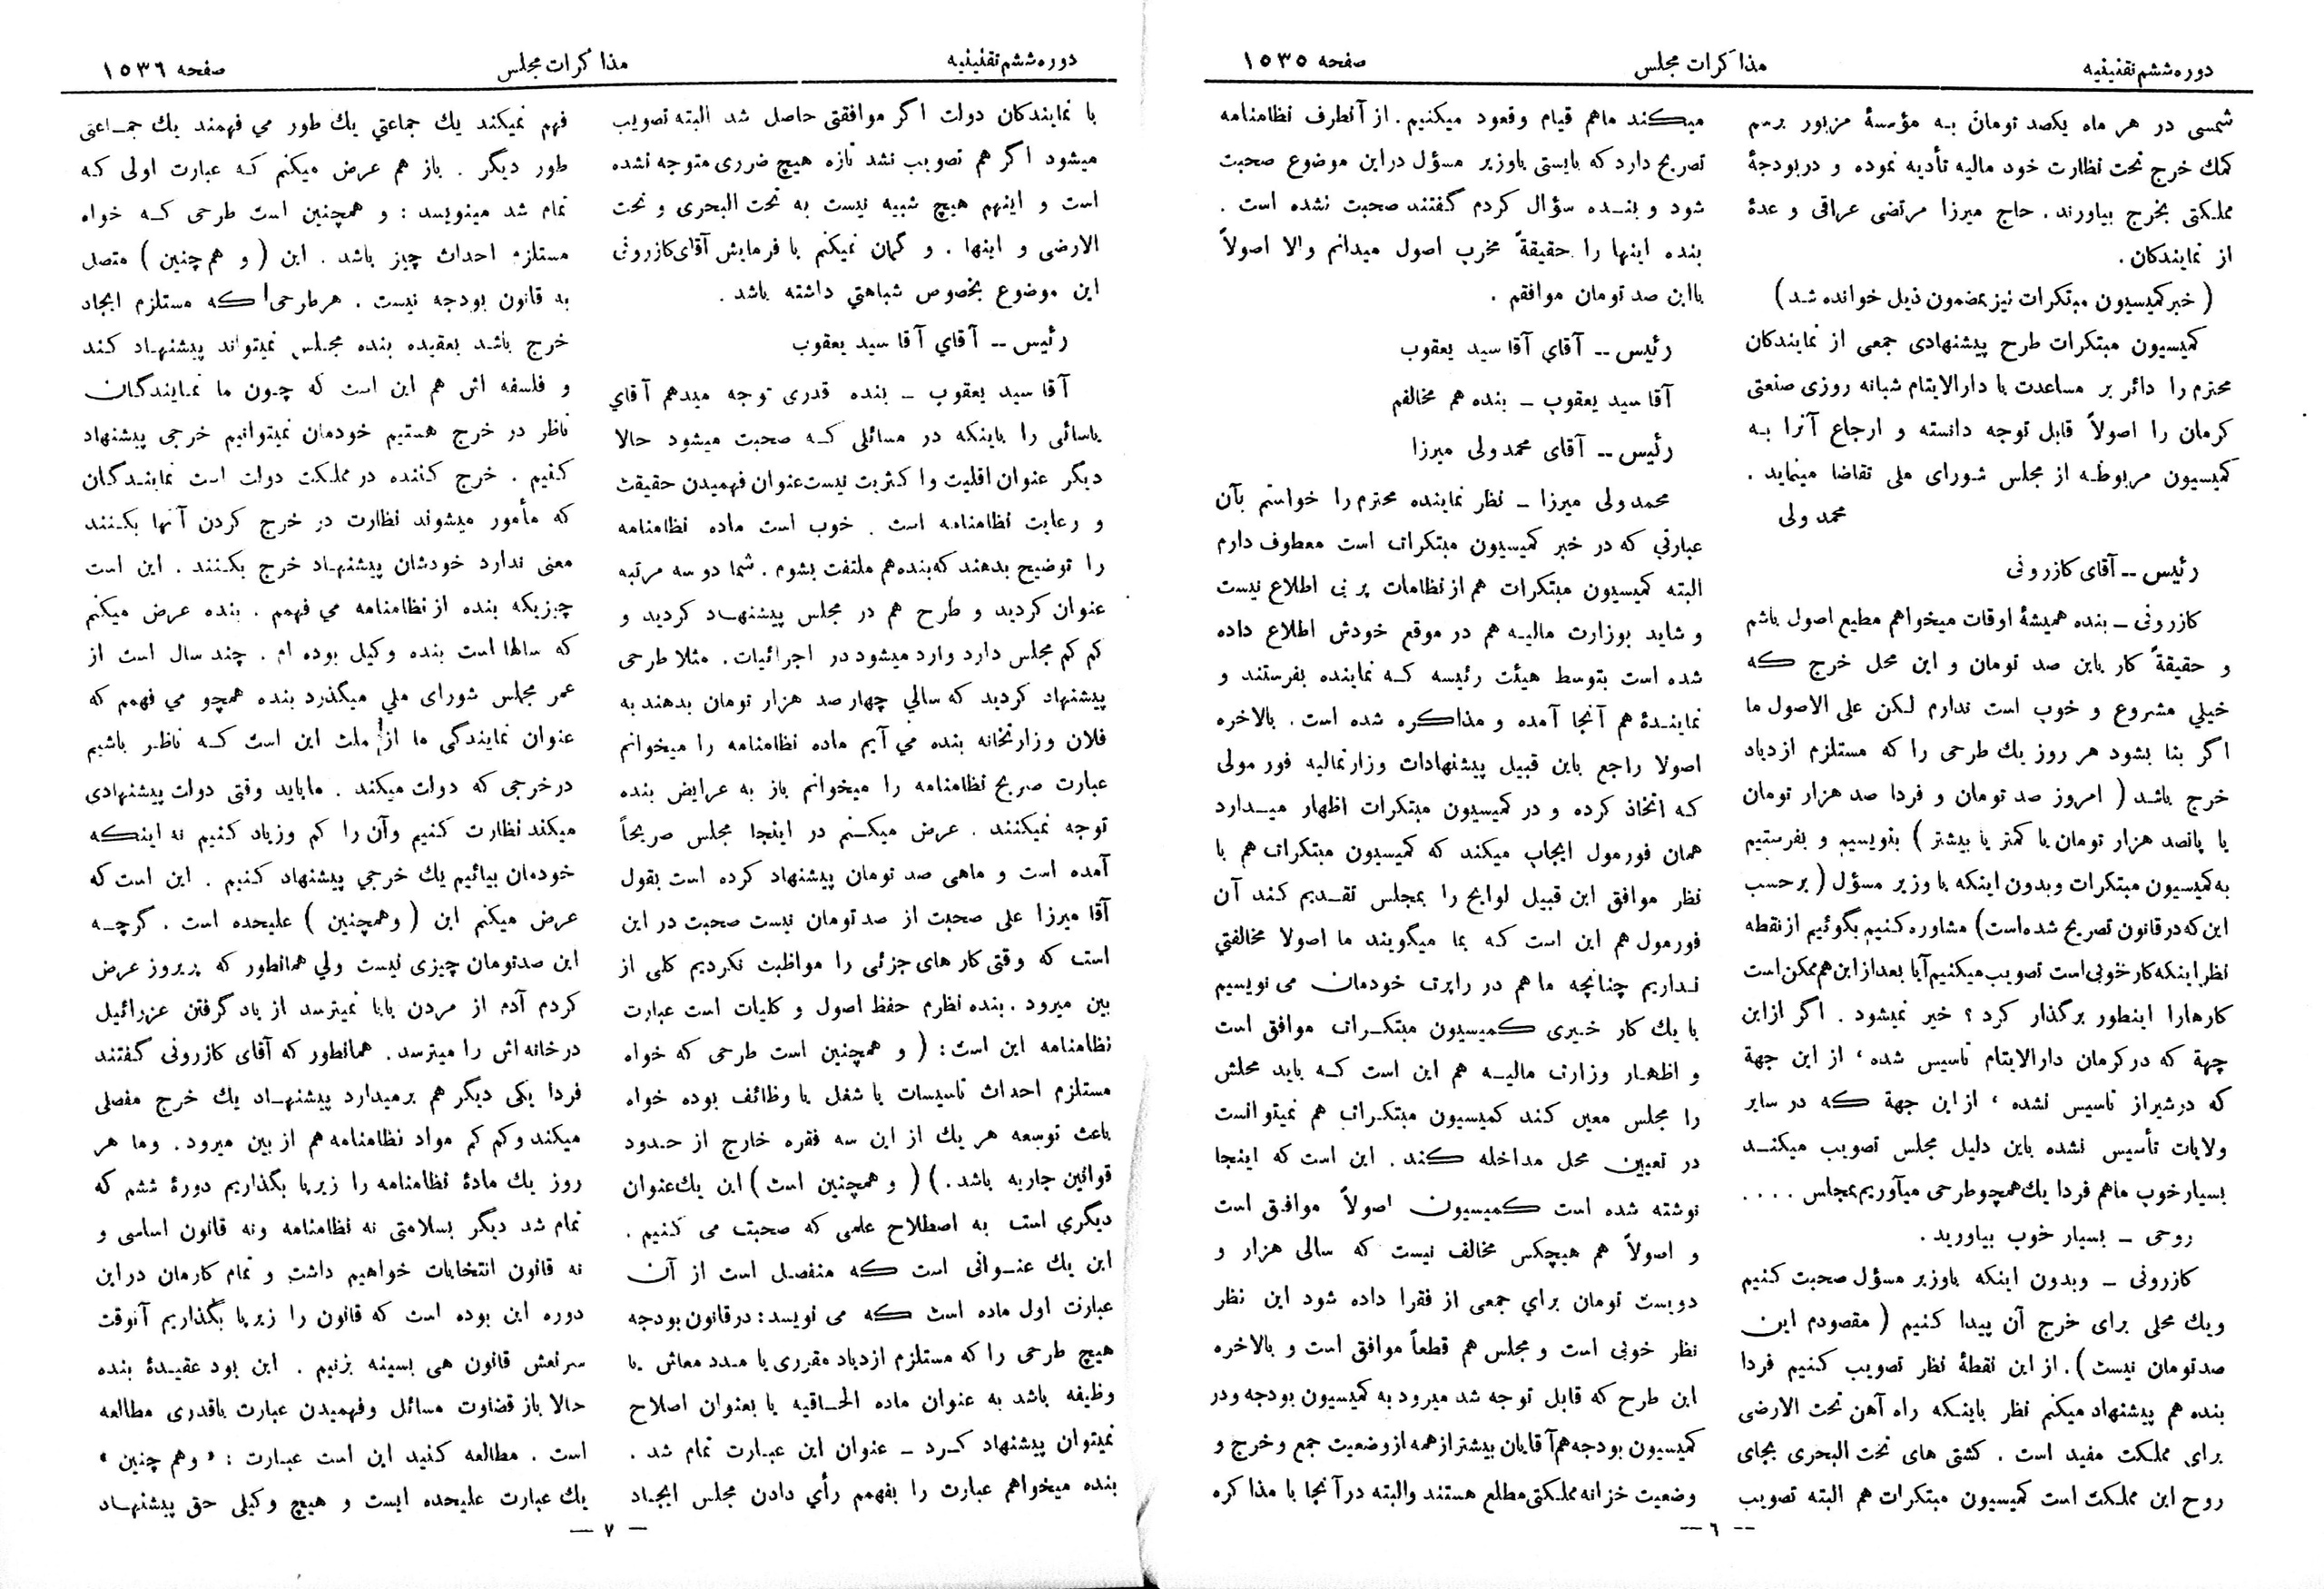 دوره ششم تقنینیه
مذاکرات مجلس
صفحه ۱۵۳۵
شمسی در هر ماه یکصد تومان به مؤسسهٔ مزبور برسم
کمك خرج تحت نظارت خود مالیه تأدیه نموده و در بودجهٔ
مملکتی بخرج بیاورند . حاج میرزا مرتضی عراقی و عدهٔ
از نمایندگان .
( خبر کمیسیون مبتکرات نیز بمضمون ذیل خوانده شد )
کمیسیون مبتکرات طرح پیشنهادی جمعی از نمایندگان
محترم را دائر بر مساعدت با دارالایتام شبانه روزی صنعتی
کرمان را اصولاً قابل توجه دانسته و ارجاع آنرا به
کمیسیون مربوطه از مجلس شورای ملی تقاضا مینماید .
محمد ولی
رئیس -- آقای کازرونی
کازرونی - بنده همیشهٔ اوقات میخواهم مطیع اصول باشم
و حقیقةً کار باین صد تومان و این محل خرج که
خیلي مشروع و خوب است ندارم لکن علی الاصول ما
اگر بنا بشود هر روز یك طرحی را که مستلزم ازدیاد
خرج باشد ( امروز صد تومان و فردا صد هزار تومان
یا پانصد هزار تومان یا کمتر یا بیشتر ) بنویسیم و بفرستیم
به کمیسیون مبتکرات و بدون اینکه با وزیر مسؤل ( بر حسب
این که در قانون تصریح شده است) مشاوره کنیم بگوئیم از نقطه
نظر اینکه کار خوبی است تصویب میکنیم آیا بعد از این هم ممکن است
کارهارا اینطور برگذار کرد ؟ خیر نمیشود . اگر از این
جهة که در کرمان دارالایتام تاسیس شده ، از این جهة
که در شیراز تاسیس نشده ، از این جهة که در سایر
ولایات تأسیس نشده باین دلیل مجلس تصویب میکنـد
بسیار خوب ما هم فردا یك همچو طرحی میآوریم بمجلس . . . .
روحی - بسیار خوب بیاورید .
کازرونی - و بدون اینکه با وزیر مسؤل صحبت کنیم
ویك محلی برای خرج آن پیدا کنیم ( مقصودم این
صد تومان نیست ) . از این نقطهٔ نظر تصویب کنیم فردا
بنده هم پیشنهاد میکنم نظر باینکه راه آهن تحت الارضی
برای مملکت مفید است . کشتی های تحت البحری بجای
روح این مملکت است کمیسیون مبتکرات هم البته تصویب
میکند ماهم قیام وقعود میکنیم . از آنطرف نظامنامه
تصریح دارد که بایستی با وزیر مسؤل در این موضوع صحبت
شود و بنده سؤال کردم گفتند صحبت نشده است .
بنده اینها را حقیقةً مخرب اصول میدانم والا اصولاً
بااین صد تومان موافقم .
رئیس -- آقاي آقا سید یعقوب
آقا سید یعقوب - بنده هم مخالفم
رئیس -- آقای محمد ولی میرزا
محمد ولی میرزا - نظر نماینده محترم را خواستم بآن
عبارتي که در خبر کمیسیون مبتکرات است معطوف دارم
البته کمیسیون مبتکرات هم از نظامات پر بی اطلاع نیست
و شاید بوزارت مالیه هم در موقع خودش اطلاع داده
شده است بتوسط هیئت رئیسه که نماینده بفرستند و
نمایندهٔ هم آنجا آمده و مذاکره شده است . بالاخره
اصولا راجع باین قبیل پیشنهادات وزارتمالیه فور مولی
که اتخاذ کرده و در کمیسیون مبتکرات اظهار میـدارد
همان فورمول ایجاب میکند که کمیسیون مبتکرات هم با
نظر موافق این قبیل لوایح را بمجلس تقدیم کند آن
فورمول هم این است که بما میگویند ما اصولا مخالفتي
نداریم چنانچه ما هم در راپرت خودمان می نویسیم
با یك کار خیری کمیسیون مبتکرات موافق است
و اظهار وزارت مالیه هم این است که باید محلش
را مجلس معین کند کمیسیون مبتکرات هم نمیتوانست
در تعیین محل مداخله کند . این است که اینجا
نوشته شده است کمیسیون اصولاً موافق است
و اصولاً هم هیچکس مخالف نیست که سالی هزار و
دویست تومان براي جمعی از فقرا داده شود این نظر
نظر خوبی است و مجلس هم قطعاً موافق است و بالاخره
این طرح که قابل توجه شد میرود به کمیسیون بودجه و در
کمیسیون بودجه هم آقایان بیشتر از همه از وضعیت جمع و خرج و
وضعیت خزانه مملکتی مطلع هستند والبته در آنجا با مذاکره
-- ٦ --
دوره ششم تقنینیه
مذاکرات مجلس
صفحه ۱۵۳٦
با نمایندگان دولت اگر موافقتی حاصل شد البته تصویب
میشود اگر هم تصویب نشد تازه هیچ ضرری متوجه نشده
است و اینهم هیچ شبیه نیست به تحت البحری و تحت
الارضی و اینها . و گمان نمیکنم با فرمایش آقای کازرونی
این موضوع بخصوص شباهتي داشته باشد .
رئیس -- آقاي آقا سید یعقوب
آقا سید یعقوب - بنده قدری توجه میدهم آقاي
یاسائی را باینکه در مسائلی که صحبت میشود حالا
دیگر عنوان اقلیت و اکثریت نیست عنوان فهمیدن حقیقت
و رعایت نظامنامه است . خوب است ماده نظامنامه
را توضیح بدهند که بنده هم ملتفت بشوم . شما دو سه مرتبه
عنوان کردید و طرح هم در مجلس پیشنهاد کردید و
کم کم مجلس دارد وارد میشود در اجرائیات . مثلا طرحی
پیشنهاد کردید که سالي چهار صد هزار تومان بدهند به
فلان وزارتخانه بنده مي آیم ماده نظامنامه را میخوانم
عبارت صریح نظامنامه را میخوانم باز به عرایض بنده
توجه نمیکنند . عرض میکنم در اینجا مجلس صریحاً
آمده است و ماهی صد تومان پیشنهاد کرده است بقول
آقا میرزا علی صحبت از صد تومان نیست صحبت در این
است که وقتی کار های جزئی را مواظبت نکردیم کلی از
بین میرود . بنده نظرم حفظ اصول و کلیات است عبارت
نظامنامه این است : ( و همچنین است طرحی که خواه
مستلزم احداث تاسیسات یا شغل یا وظائف بوده خواه
باعث توسعه هر یك از این سه فقره خارج از حدود
قوانین جاریه باشد . ) ( و همچنین است ) این یك عنوان
دیگري است به اصطلاح علمی که صحبت می کنیم .
این یك عنـوانی است که منفصل است از آن
عبارت اول ماده است که می نویسد : در قانون بودجه
هیچ طرحی را که مستلزم ازدیاد مقرری یا مدد معاش یا
وظیفه باشد به عنوان ماده الحاقیه یا بعنوان اصلاح
نمیتوان پیشنهاد کرد - عنوان این عبارت تمام شد .
بنده میخواهم عبارت را بفهمم رأي دادن مجلس ایجاد
فهم نمیکند یك جماعتي یك طور مي فهمند یك جمـاعتی
طور دیگر . باز هم عرض میکنم که عبارت اولی که
تمام شد مینویسد : و همچنین است طرحی که خواه
مستلزم احداث چیز باشد . این ( و هم چنین ) متصل
به قانون بودجه نیست . هر طرحی که مستلزم ایجاد
خرج باشد بعقیده بنده مجلس نمیتواند پیشنهاد کند
و فلسفه اش هم این است که چون ما نمایندگان
ناظر در خرج هستیم خودمان نمیتوانیم خرجی پیشنهاد
کنیم . خرج کننده در مملکت دولت است نمایندگان
که مأمور میشوند نظارت در خرج کردن آنها بکنند
معنی ندارد خودشان پیشنهاد خرج بکنند . این است
چیزیکه بنده از نظامنامه مي فهمم . بنده عرض میکنم
که سالها است بنده وکیل بوده ام . چند سال است از
عمر مجلس شورای ملي میگذرد بنده همچو مي فهمم که
عنوان نمایندگی ما از ملت این است که ناظر باشیم
در خرجی که دولت میکند . ما باید وقتی دولت پیشنهادی
میکند نظارت کنیم و آن را کم وزیاد کنیم نه اینکه
خودمان بیائیم یك خرجي پیشنهاد کنیم . این است که
عرض میکنم این ( و همچنین ) علیحده است . گرچه
این صد تومان چیزی نیست ولي همانطور که پریروز عرض
کردم آدم از مردن بابا نمیترسد از یاد گرفتن عزرائیل
در خانه اش را میترسد . همانطور که آقای کازرونی گفتند
فردا یکی دیگر هم بر میدارد پیشنهاد یك خرج مفصلی
میکند وکم کم مواد نظامنامه هم از بین میرود . وما هر
روز یك مادهٔ نظامنامه را زیر پا بگذاریم دورهٔ ششم که
تمام شد دیگر بسلامتی نه نظامنامه ونه قانون اساسی و
نه قانون انتخابات خواهیم داشت و تمام کارمان در این
دوره این بوده است که قانون را زیر پا بگذاریم آنوقت
سر نعش قانون هی بسینه بزنیم . این بود عقیدهٔ بنده
حالا باز قضاوت مسائل وفهمیدن عبارت باقدری مطالعه
است . مطالعه کنید این است عبارت : « وهم چنین »
یك عبارت علیحده ایست و هیچ وکیلی حق پیشنهاد
— ۷ —